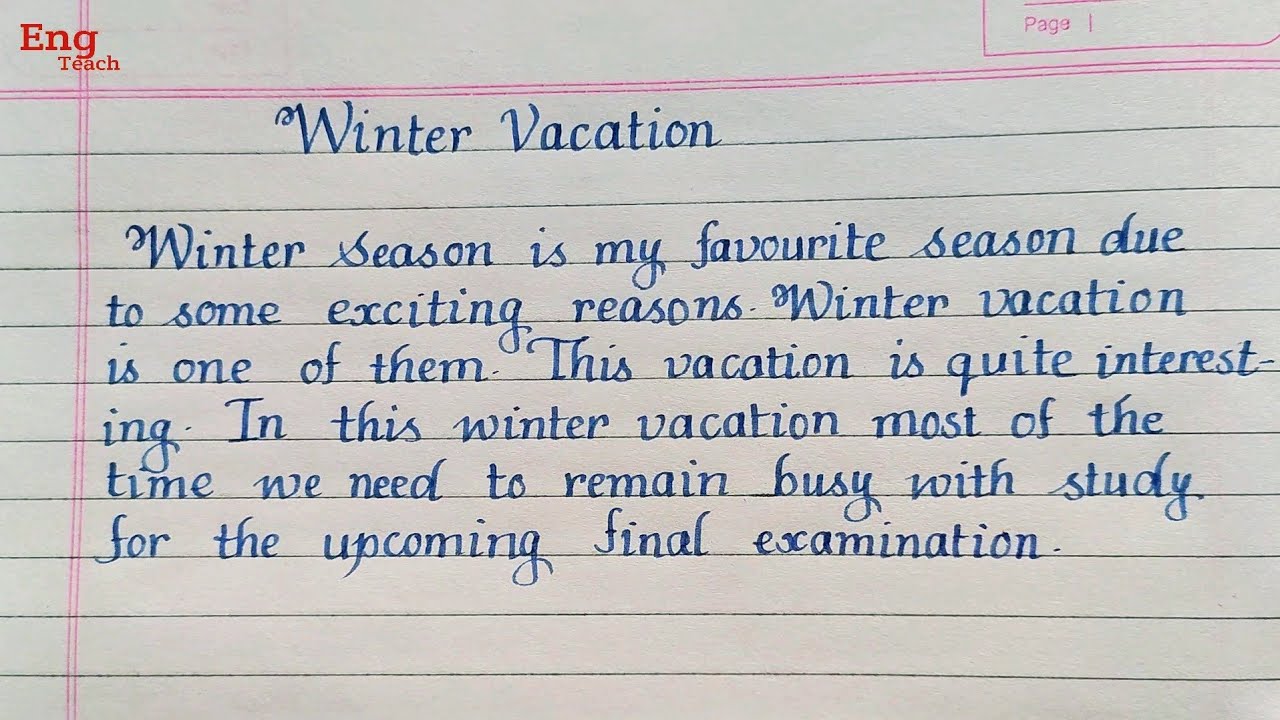 Eng
Teach
Page
Winter Vacation
Winter season is my favourite season due
to some exciting reasons. Winter vacation
is one of them. This vacation is quite interest-
ing. In this winter vacation most of the
time we need to remain busy with study
for the upcoming final examination.